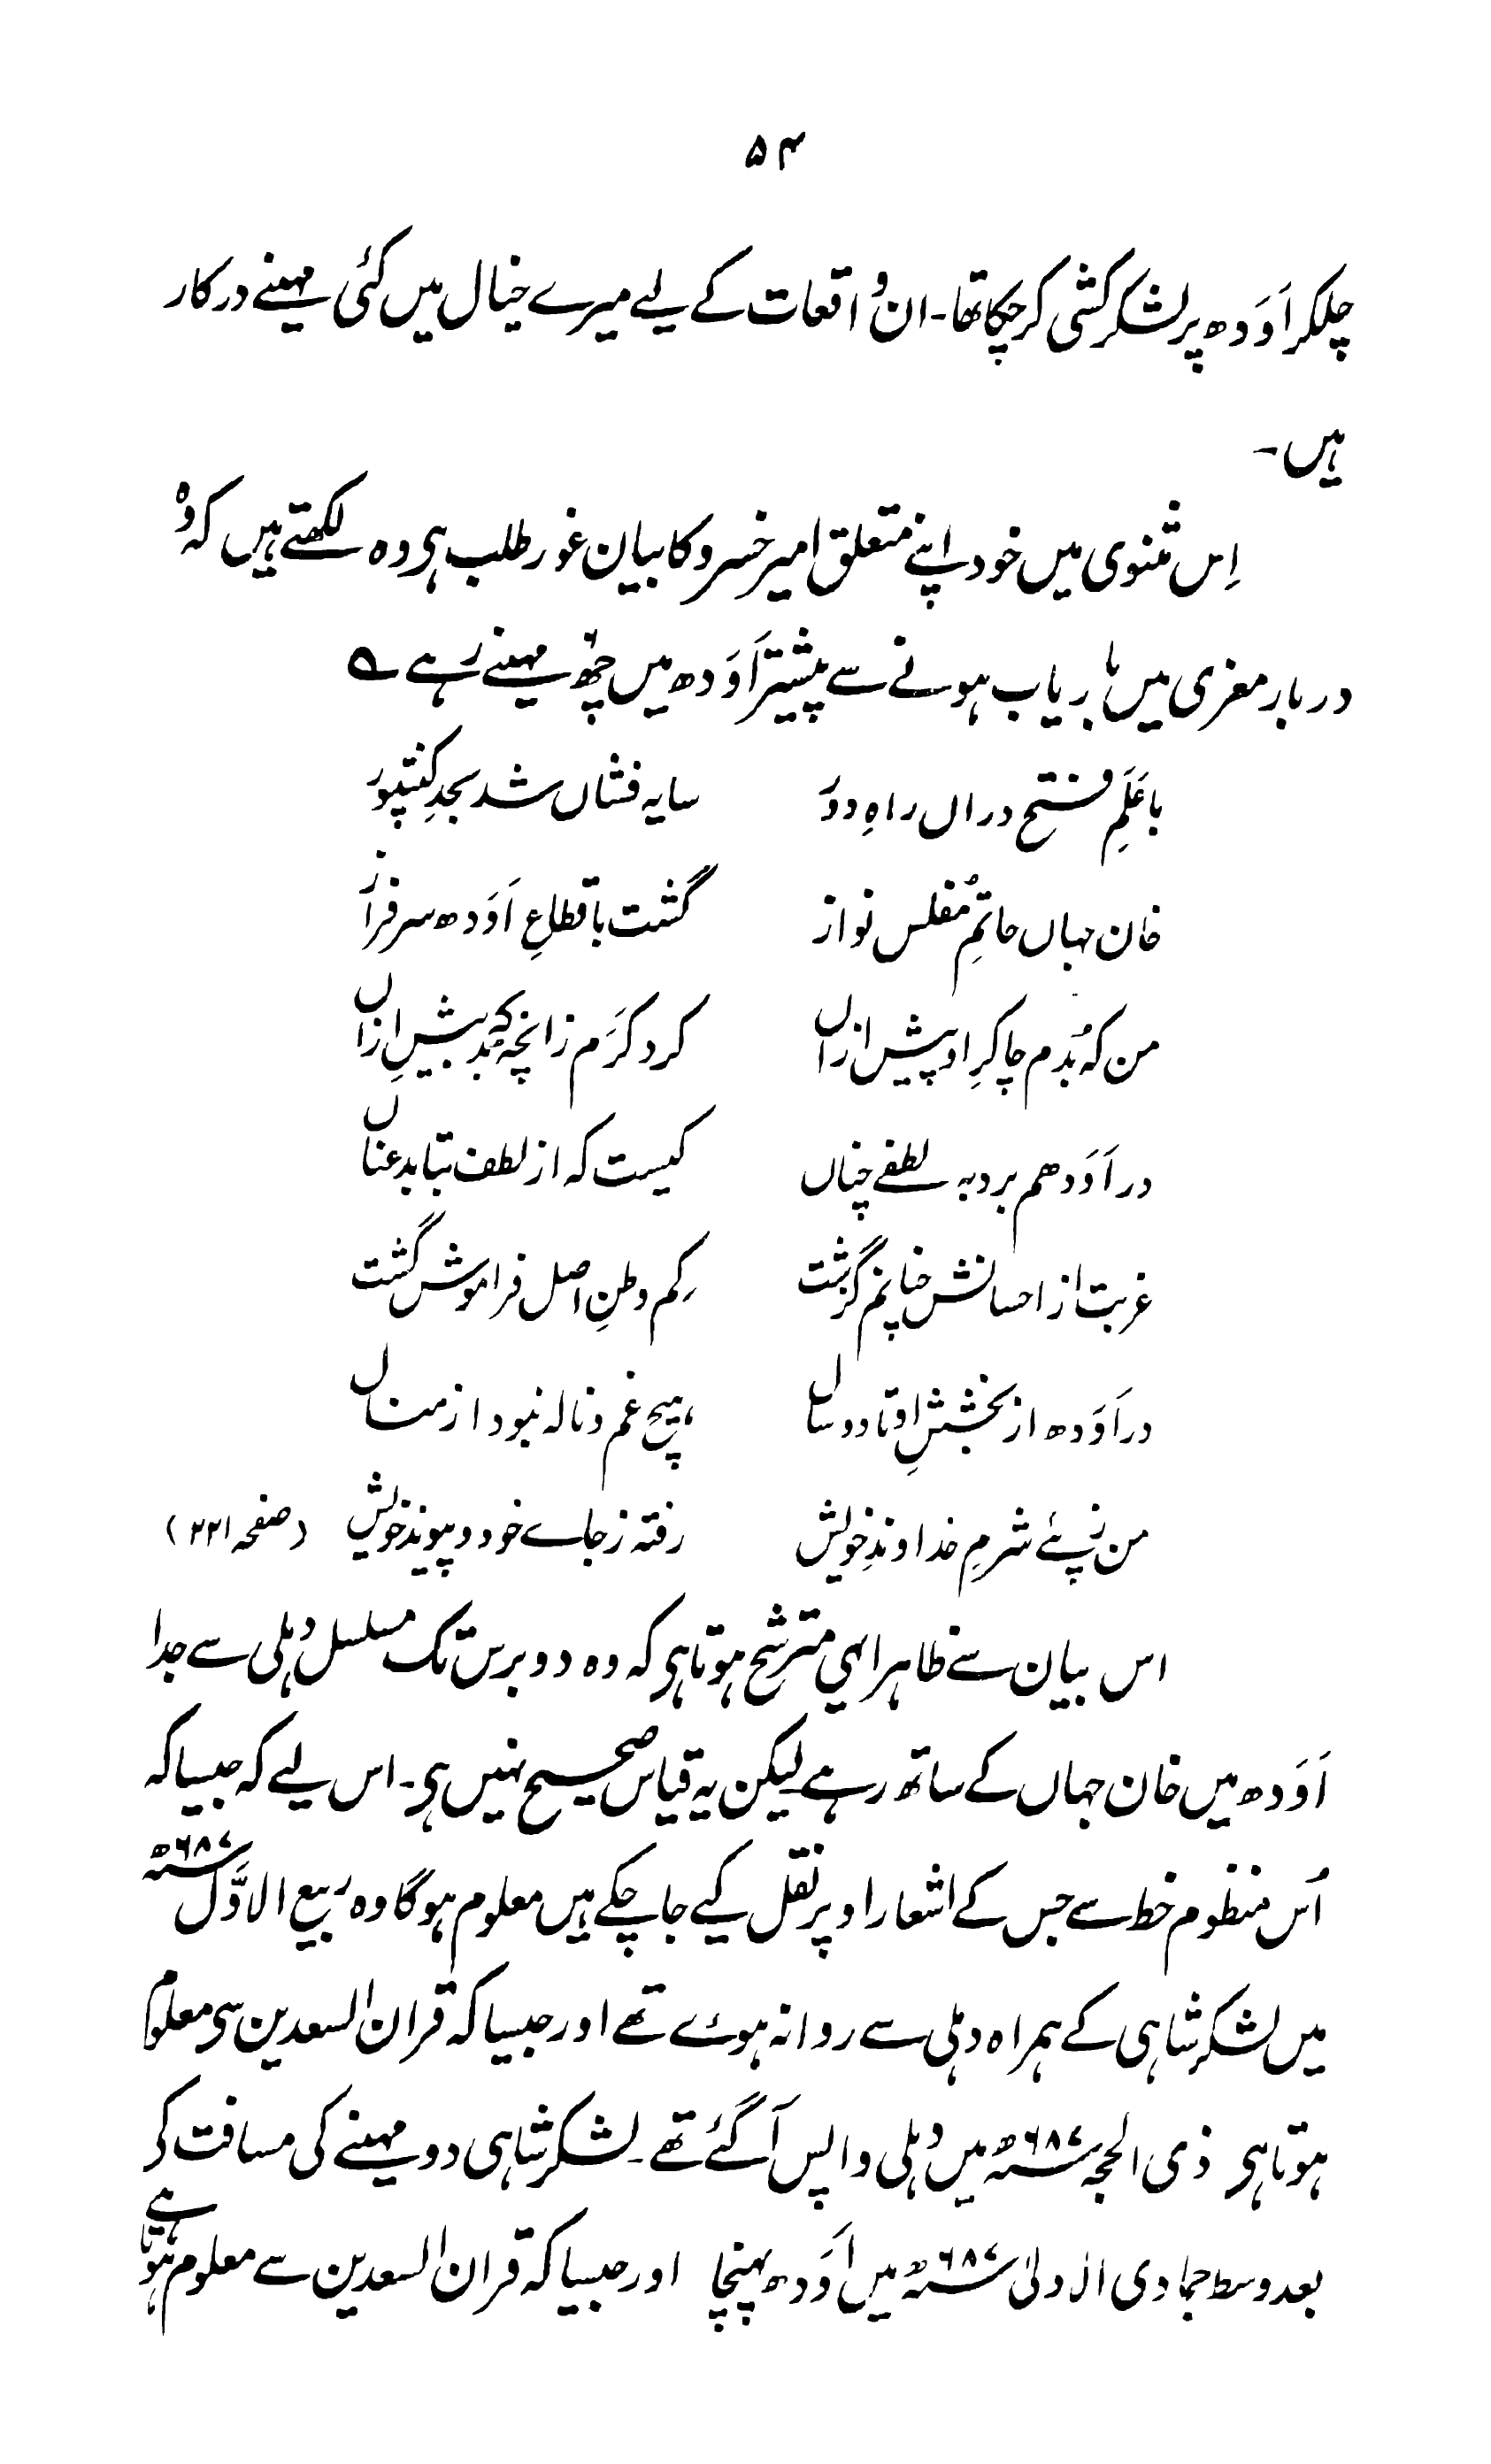 ۵۴
چلکر اَوَدھ پر لشکر کشی کر چکا تھا۔ ان واقعات کے لیے میرے خیال میں کئی مہینے درکار
ہیں۔
اِس مثنوی میں خود اپنے متعلق امیر خسرو کا بیان غور طلب ہی وہ لکھتے ہیں کہ وہ
دربار معزی میں باریاب ہونے سے پیشتر اَوَدھ میں چھ مہینے رہے ؎
با عَلَمِ فتح دراں راہِ دور سایہ فشاں شد بحدِ کنتپور
خان جہاں حاتمِ مُفلس نواز گشت باقطاعِ اَوَدھ سرفراز
من کہ بُدم چاکرِ او پیش ازاں کرد کرَم زانچہ کہ بُد بیش ازاں
در اَوَدھم برد بہ لطفے چناں کیست کہ از لطف بتابد عناں
غربت از احسانش چنانم گزشت کم وطنِ اصل فراموش گشت
در اَوَدھ از بخششِ او تا دو سال ہیچ غم و نالہ نبود از منال
من ز پئے شرمِ خداوندِ خویش رفتہ ز جاے خود و پیوند خویش (صفحہ ۲۲۱)
اس بیان سے ظاہرا یہی مترشح ہوتا ہی کہ وہ دو برس تک مسلسل دہلی سے جدا
اَوَدھ میں خان جہاں کے ساتھ رہے لیکن یہ قیاس صحیح نہیں ہی۔ اس لیے کہ جیسا کہ
اُس منظوم خط سے جس کے اشعار اوپر نقل کیے جا چکے ہیں معلوم ہوگا وہ ربیع الاوَّل ۶۸۷ھ
میں لشکر شاہی کے ہمراہ دہلی سے روانہ ہوئے تھے اور جیسا کہ قران السعدین سی معلوم
ہوتا ہی ذی الحجہ ۶۸۷ھ میں دہلی واپس آگئے تھے۔ لشکر شاہی دو مہینے کی مسافت کی
بعد وسط جمادی الاولیٰ ۶۸۷ھ میں اَوَدھ پہنچا اور جیسا کہ قران السعدین سے معلوم ہوتا ہے